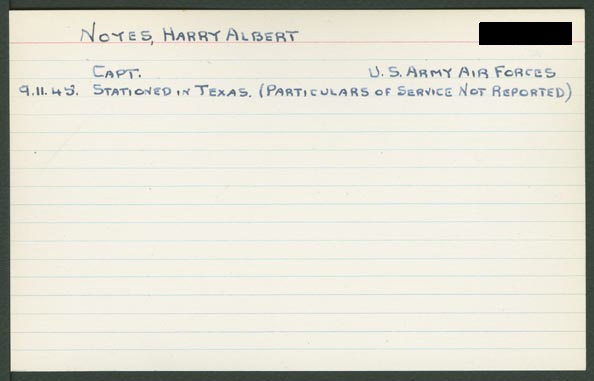 NOYES, HARRY ALBERT
CAPT. U.S. ARMY AIR FORCES
9.11.45. STATIONED IN TEXAS. (PARTICULARS OF SERVICE NOT REPORTED)